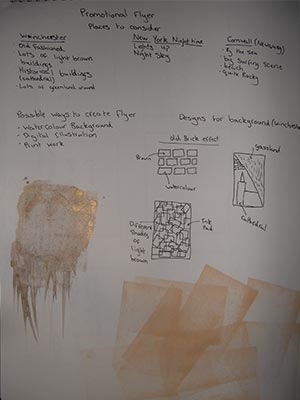 Promotional Flyer
Places to consider
Winchester
Old Fashioned
Lots of light brown
buildings
Historical buildings
(cathedral)
Lots of grassland around
New York Night time
Lights up
Night Sky
Cornwall (Newquay)
By the Sea
big surfing scene
beach
Quite Rocky
Possible ways to create Flyer
- Watercolour Background
- Digital Illustration
- Print work
Designs for background (Winchester
old Brick effect
Brown
watercolour
grassland
Cathedral
Different
Shades
of
light
brown
Ink
Pad